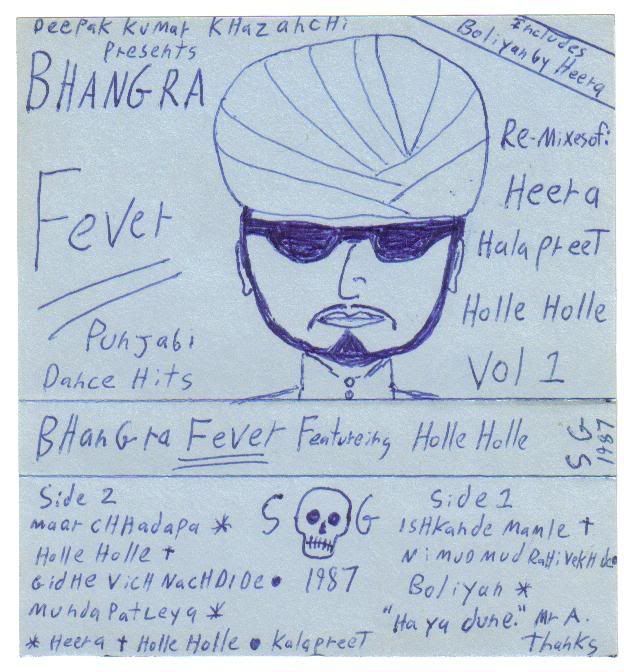 Deepak Kumar Khazahchi
Presents
BHANGRA
Fever
Punjabi
Dance Hits
Includes
Boliyan by Heera
Re-Mixes of:
Heera
Halapreet
Holle Holle
Vol 1
BHanGra Fever Featureing Holle Holle
SG
1987
Side 2
Maar CHHadapa *
Holle Holle †
GidHe VicH NacHDIDe •
Munda Patleya *
* Heera † Holle Holle • KalapreeT
S G
1987
Side 1
ISHkande Mamle †
Ni Mud Mud RaHi VekHde •
Boliyan *
"Ha ya dune." Mr A.
Thanks